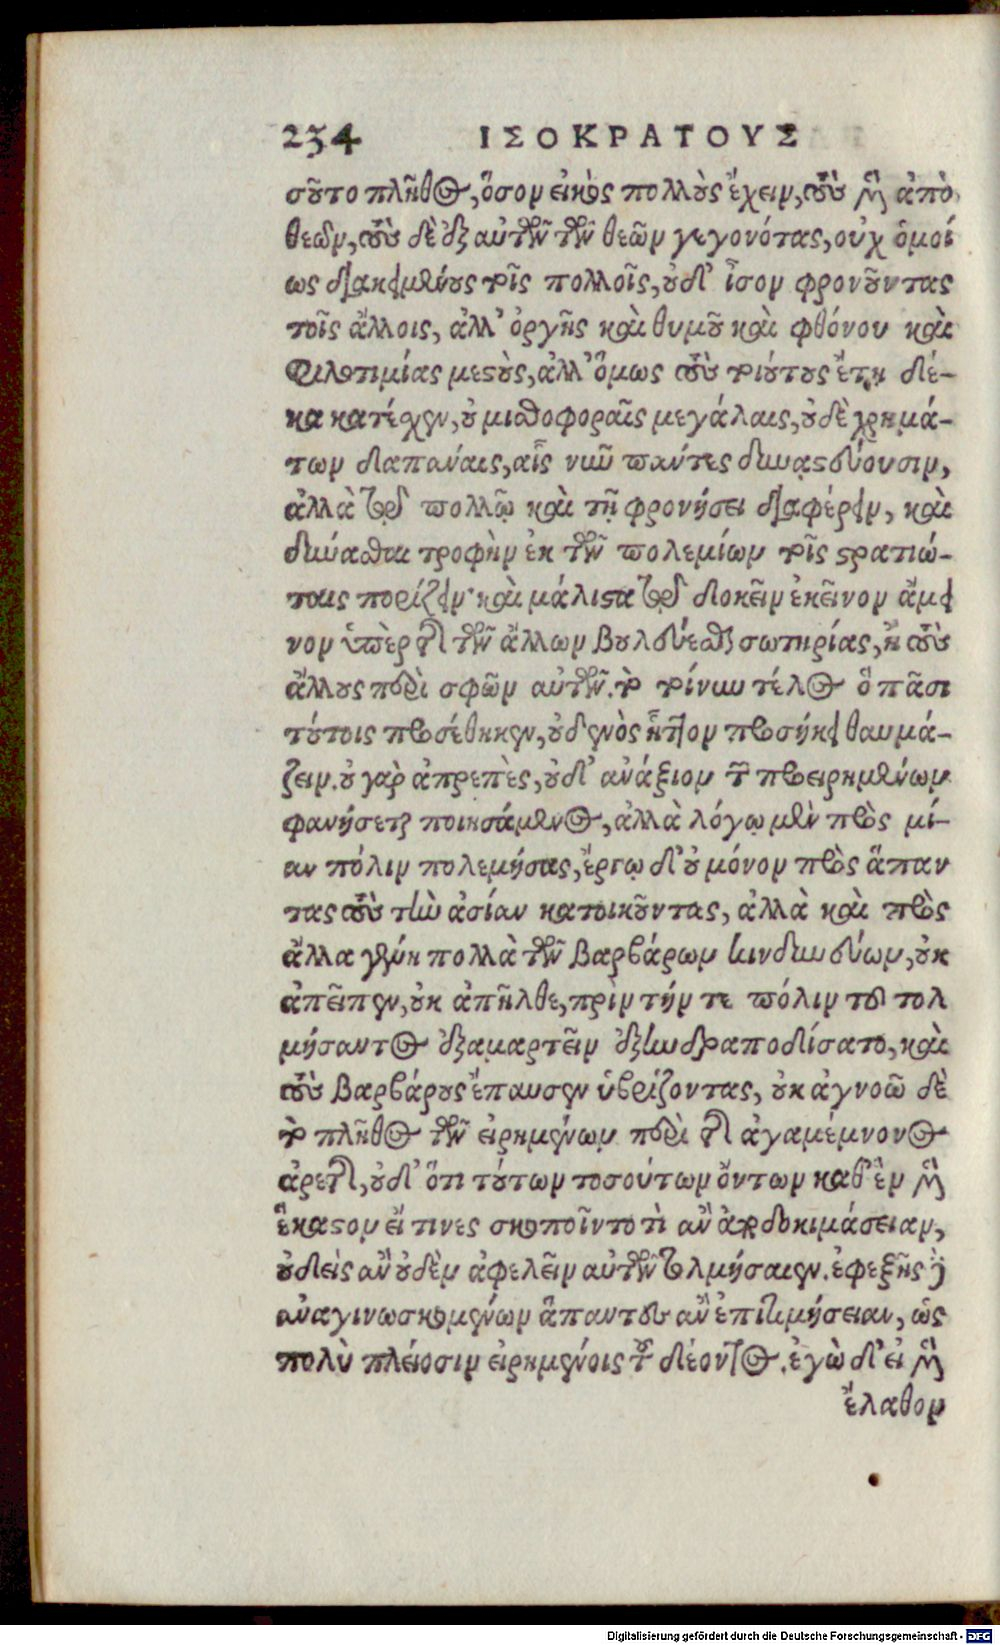 234 ΙΣΟΚΡΑΤΟΥΣ
σοῦτο πλῆθος, ὅσον εἰκὸς πολλοὺς ἔχειν, τοὺς μὲν ἀπὸ
θεῶν, τοὺς δὲ ἐξ αὐτῶν τῶν θεῶν γεγονότας, οὐχ ὁμοί
ως διακειμένους τοῖς πολλοῖς, οὐδ' ἶσον φρονοῦντας
τοῖς ἄλλοις, ἀλλ' ὀργῆς καὶ θυμοῦ καὶ φθόνου καὶ
φιλοτιμίας μεστοὺς, ἀλλ' ὅμως τοὺς τοιούτους ἔτη δέ-
κα κατέσχεν, οὐ μισθοφοραῖς μεγάλαις, οὐδὲ χρημά-
των δαπάναις, αἷς νῦν πάντες δυναστεύουσιν,
ἀλλὰ τῷ πολλῷ καὶ τῇ φρονήσει διαφέρειν, καὶ
δύνασθαι τροφὴν ἐκ τῶν πολεμίων τοῖς στρατιώ-
ταις πορίζειν· καὶ μάλιστα τῷ δοκεῖν ἐκεῖνον ἄμει
νον ὑπὲρ τῆς τῶν ἄλλων βουλεύεσθαι σωτηρίας, ἢ τοὺς
ἄλλους περὶ σφῶν αὐτῶν. τὸ τοίνυν τέλος ὃ πᾶσι
τούτοις προσέθηκεν, οὐδενὸς ἧττον προσήκει θαυμά-
ζειν. οὐ γὰρ ἀπρεπὲς, οὐδ' ἀνάξιον τῶν προειρημένων
φανήσεται ποιησάμενος, ἀλλὰ λόγῳ μὲν πρὸς μί-
αν πόλιν πολεμήσας, ἔργῳ δ' οὐ μόνον πρὸς ἅπαν
τας τοὺς τὴν ἀσίαν κατοικοῦντας, ἀλλὰ καὶ πρὸς
ἄλλα γένη πολλὰ τῶν βαρβάρων κινδυνεύων, οὐκ
ἀπεῖπεν, οὐκ ἀπῆλθε, πρὶν τήν τε πόλιν τοῦ τολ
μήσαντος ἐξαμαρτεῖν ἐξηνδραποδίσατο, καὶ
τοὺς βαρβάρους ἔπαυσεν ὑβρίζοντας, οὐκ ἀγνοῶ δὲ
τὸ πλῆθος τῶν εἰρημένων περὶ τῆς ἀγαμέμνονος
ἀρετῆς, οὐδ' ὅτι τούτων τοσούτων ὄντων καθ' ἓν μὲν
ἕκαστον εἴ τινες σκοποῖντο τὶ ἂν ἀποδοκιμάσειαν,
οὐδεὶς ἂν οὐδὲν ἀφελεῖν αὐτῶν τολμήσαιεν. ἐφεξῆς δὲ
ἀναγινωσκομένων ἅπαντες ἂν ἐπιτιμήσειαν, ὡς
πολὺ πλέιοσιν εἰρημένοις τοῦ δέοντος. ἐγὼ δ' εἰ μὲν
ἔλαθον
Digitalisierung gefördert durch die Deutsche Forschungsgemeinschaft - DFG